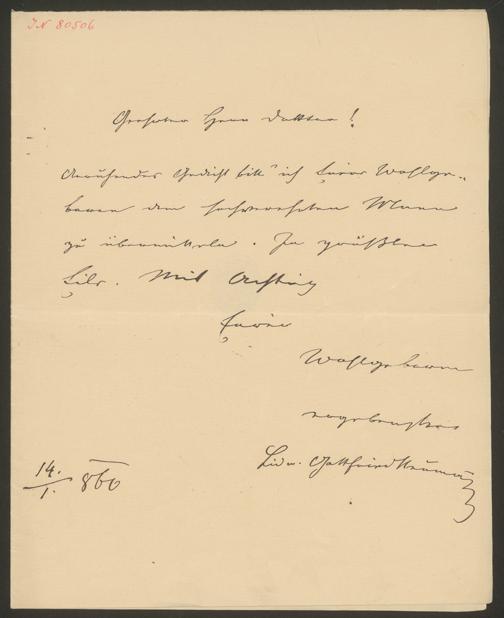 I.N 80506
Geehrter Herr Doktor!
Anruhendes Gedicht bitt' ich Euer Wohlge-
boren dem
zu übermitteln. In größter
Eile. Mit Achtung
Euer
Wohlgeboren
ergebenster
Ludw. Gottfried Neumann
14./1. 860